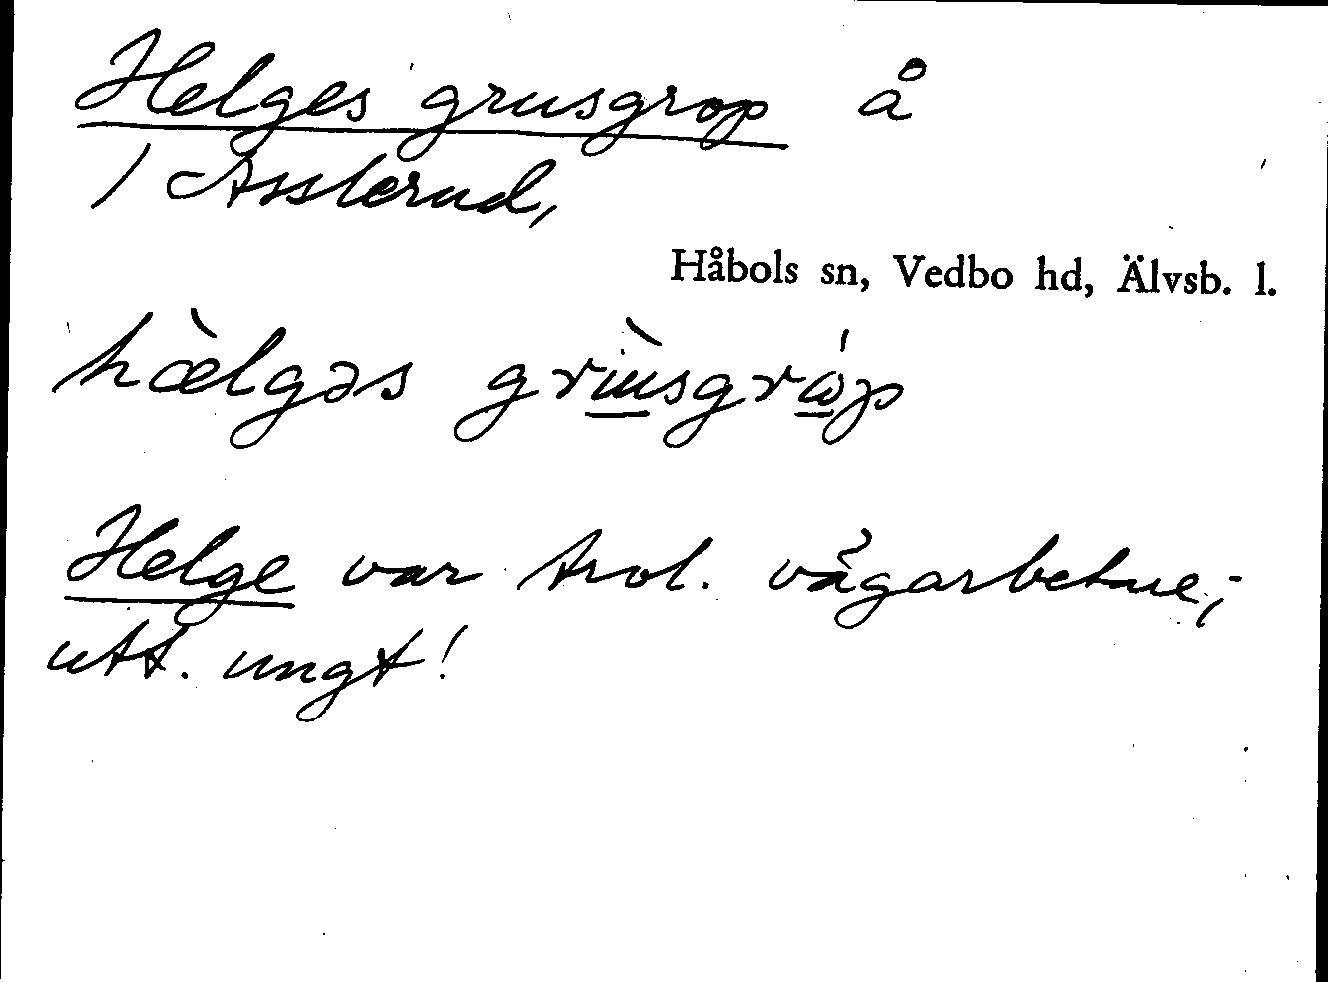 Helges grusgrop å
1 Asslerud,
Håbols sn, Vedbo hd, Älvsb. l.
hæ̀lgəs grùsgráp
Helge var trol. vägarbetare;
utt. ungt!